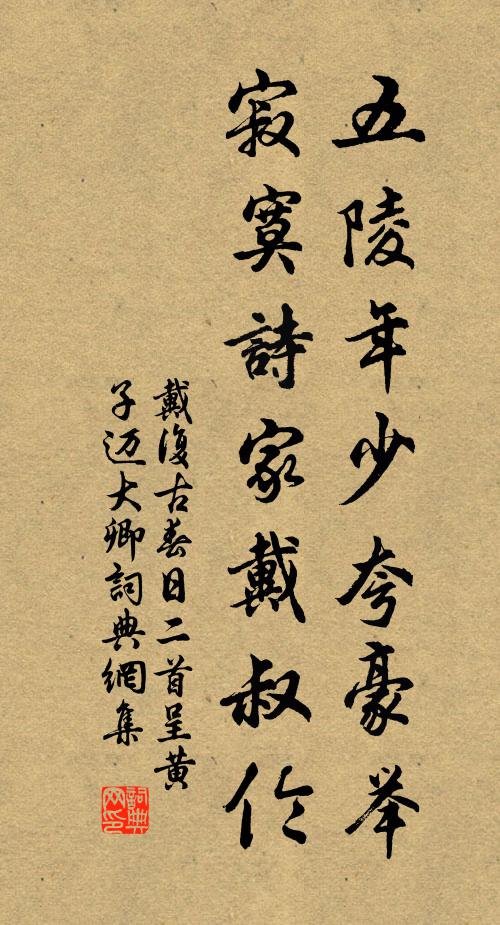 五陵年少夸豪举
寂寞詩家戴叔伦
戴復古春日二首呈黄
子迈大卿詞典網集
詞典
网印